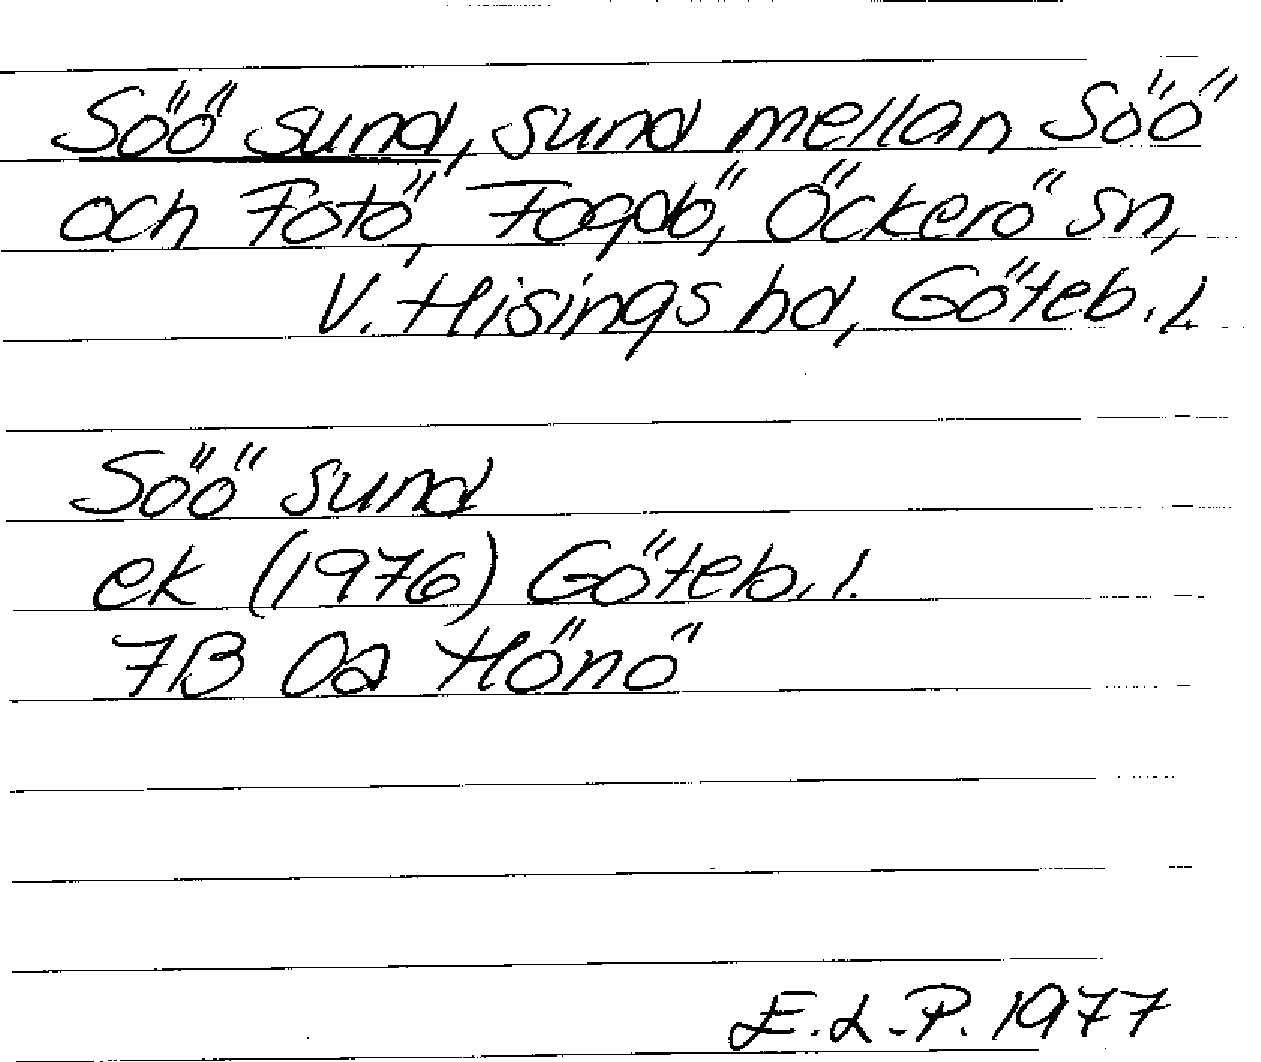 Söö sund, sund mellan Söö
och Fotö, Fogdö, Öckerö sn,
V. Hisings hd, Göteb. l.
Söö sund
ek (1976) Göteb. l.
7B 0a Hönö
E.L.P. 1977